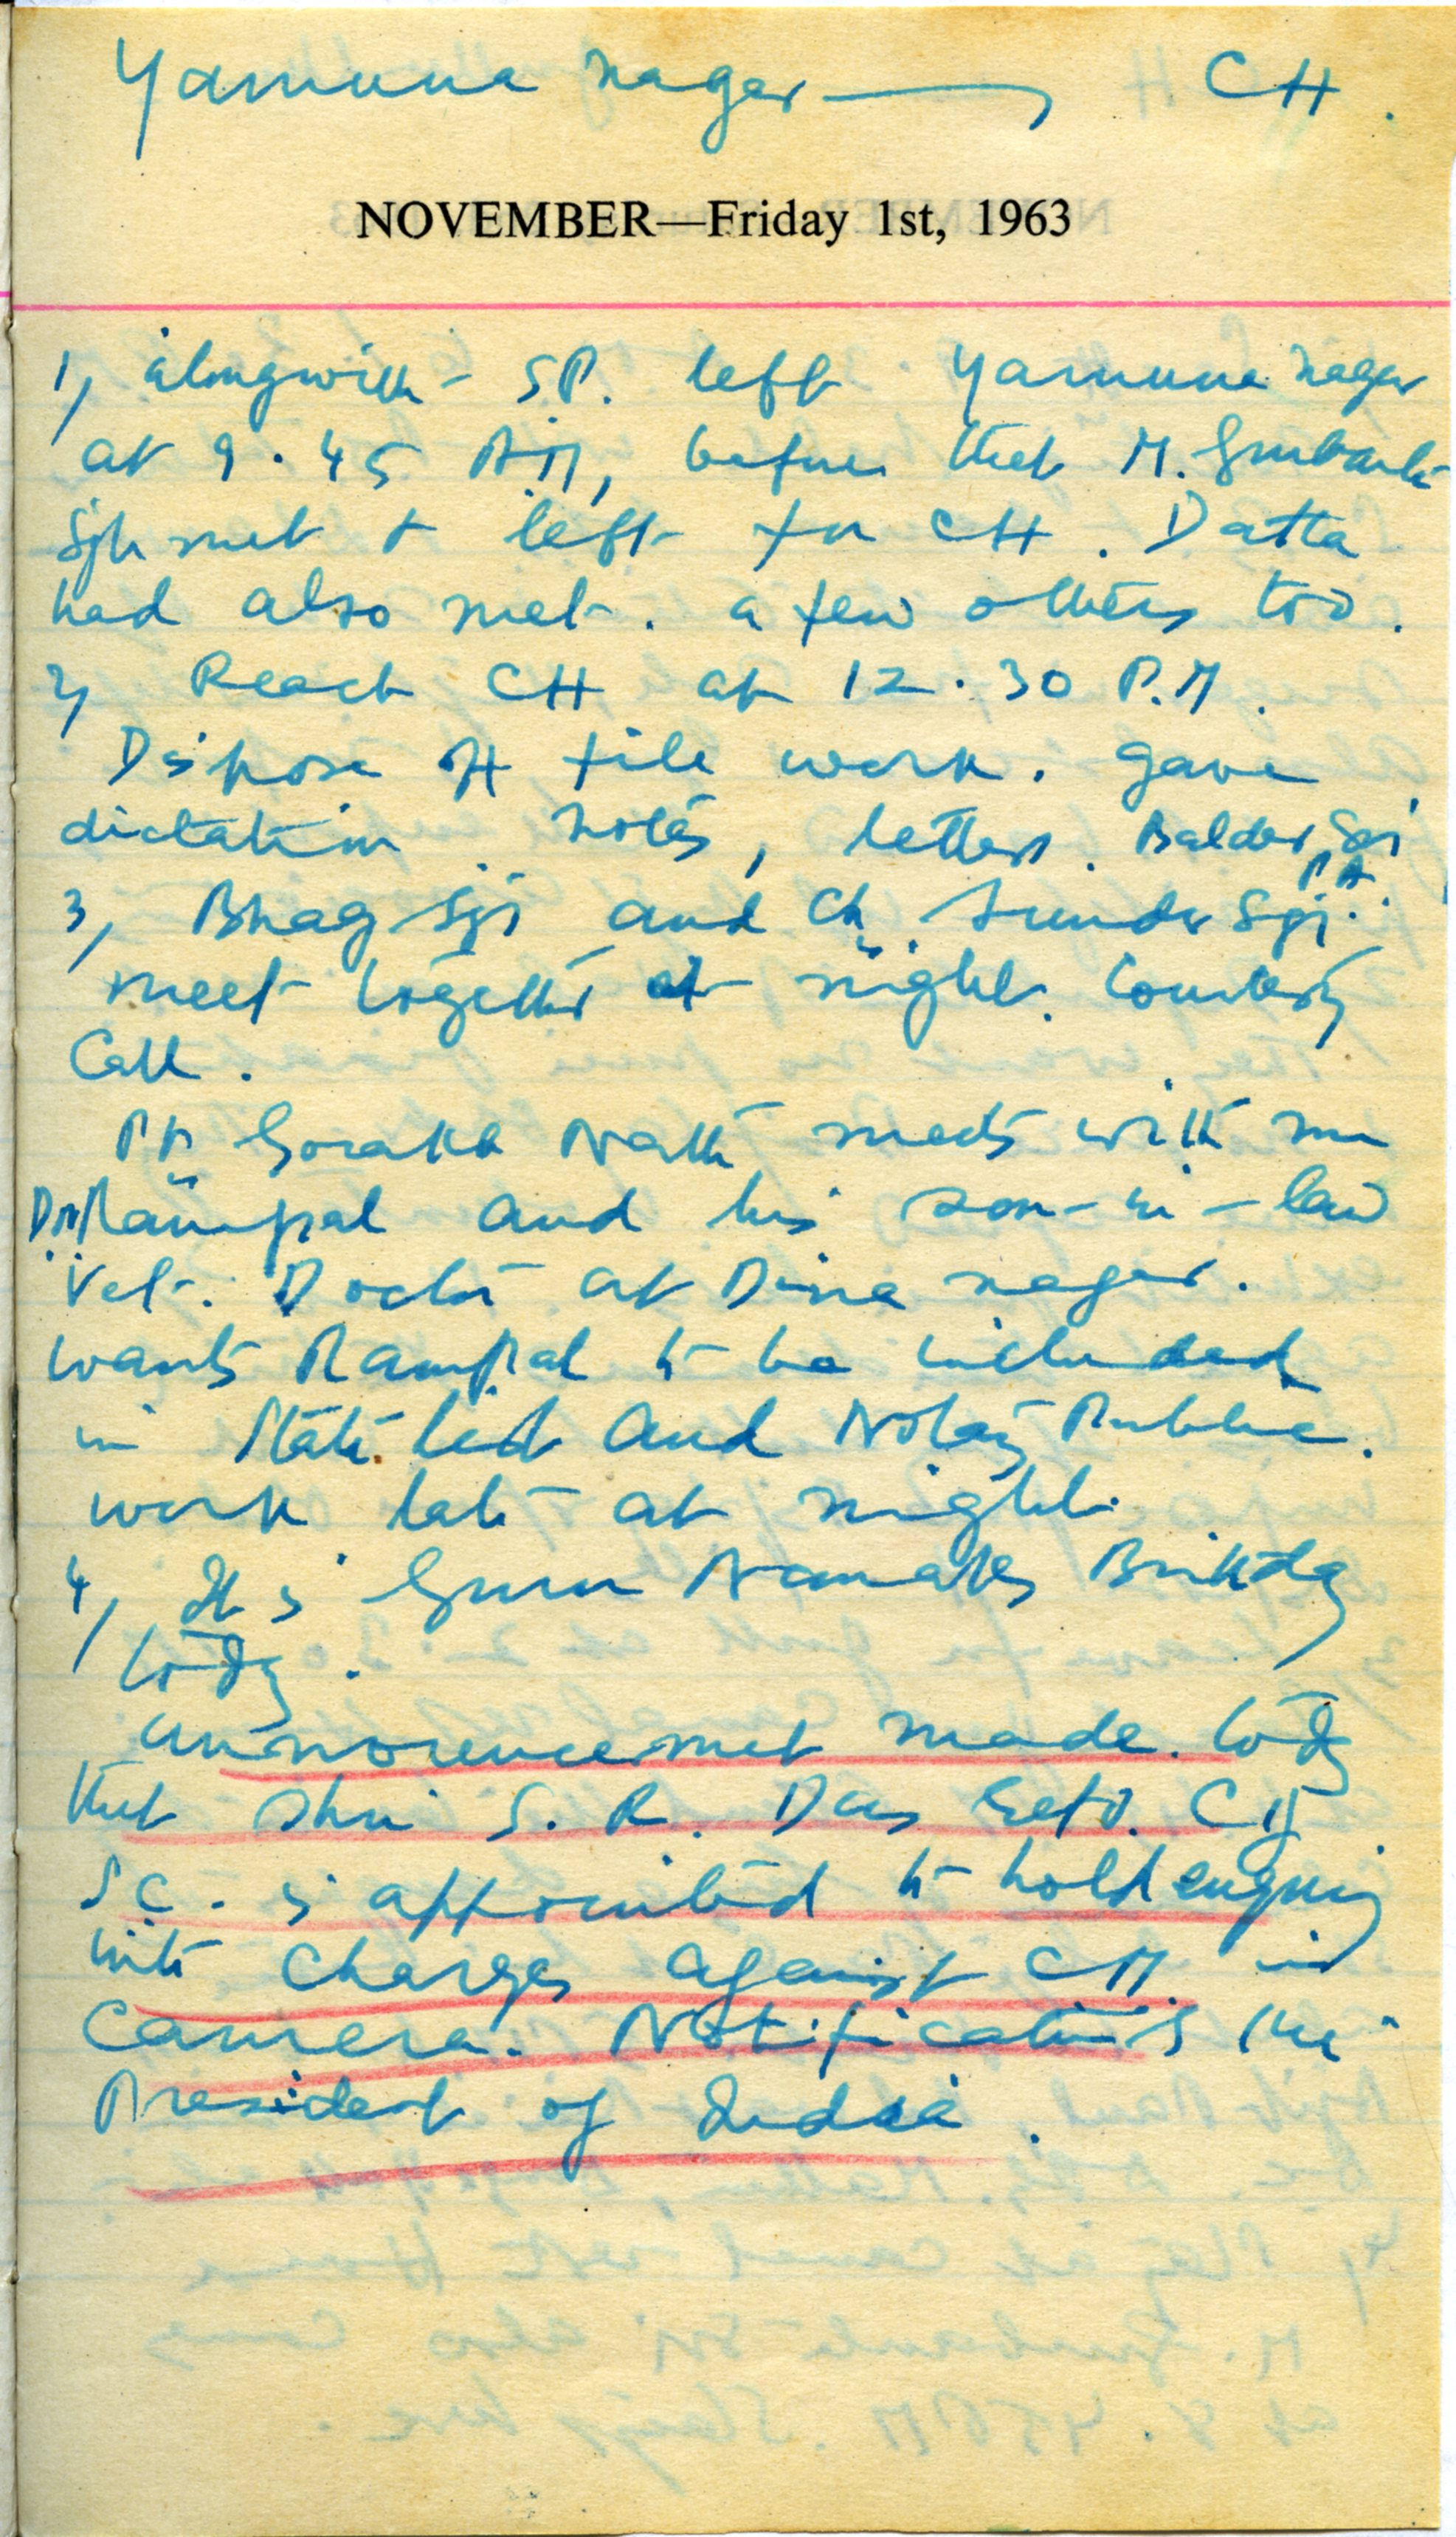 Yamuna Nagar — CH.
NOVEMBER—Friday 1st, 1963
1, alongwith S.P. left Yamuna Nagar
at 9.45 AM, before that M. Gurbanta
Sgh met & left for CH. Datta
had also met. a few others too.
2, Reach CH at 12.30 P.M.
Dispose off file work. Gave
dictation. Notes, letters. Baldev Sgi
P.A.
3, Bhag Sgi and Ch. Sunder Sgi.
meet together at night. Courtesy
Call.
Pt Gorakh Nath meets with me
Dr. Rampal and his son-in-law
Vet. Doctor at Dina nagar.
wants Rampal to be included
in State list and Notary Public.
work late at night.
4, It is Guru Nanak's Birthday
today.
Announcemet made today
that Shri S. R. Das Retd. CJ
S.C. is appointed to hold enquiry
into charges against CM in
Camera. Notification is the
President of India.